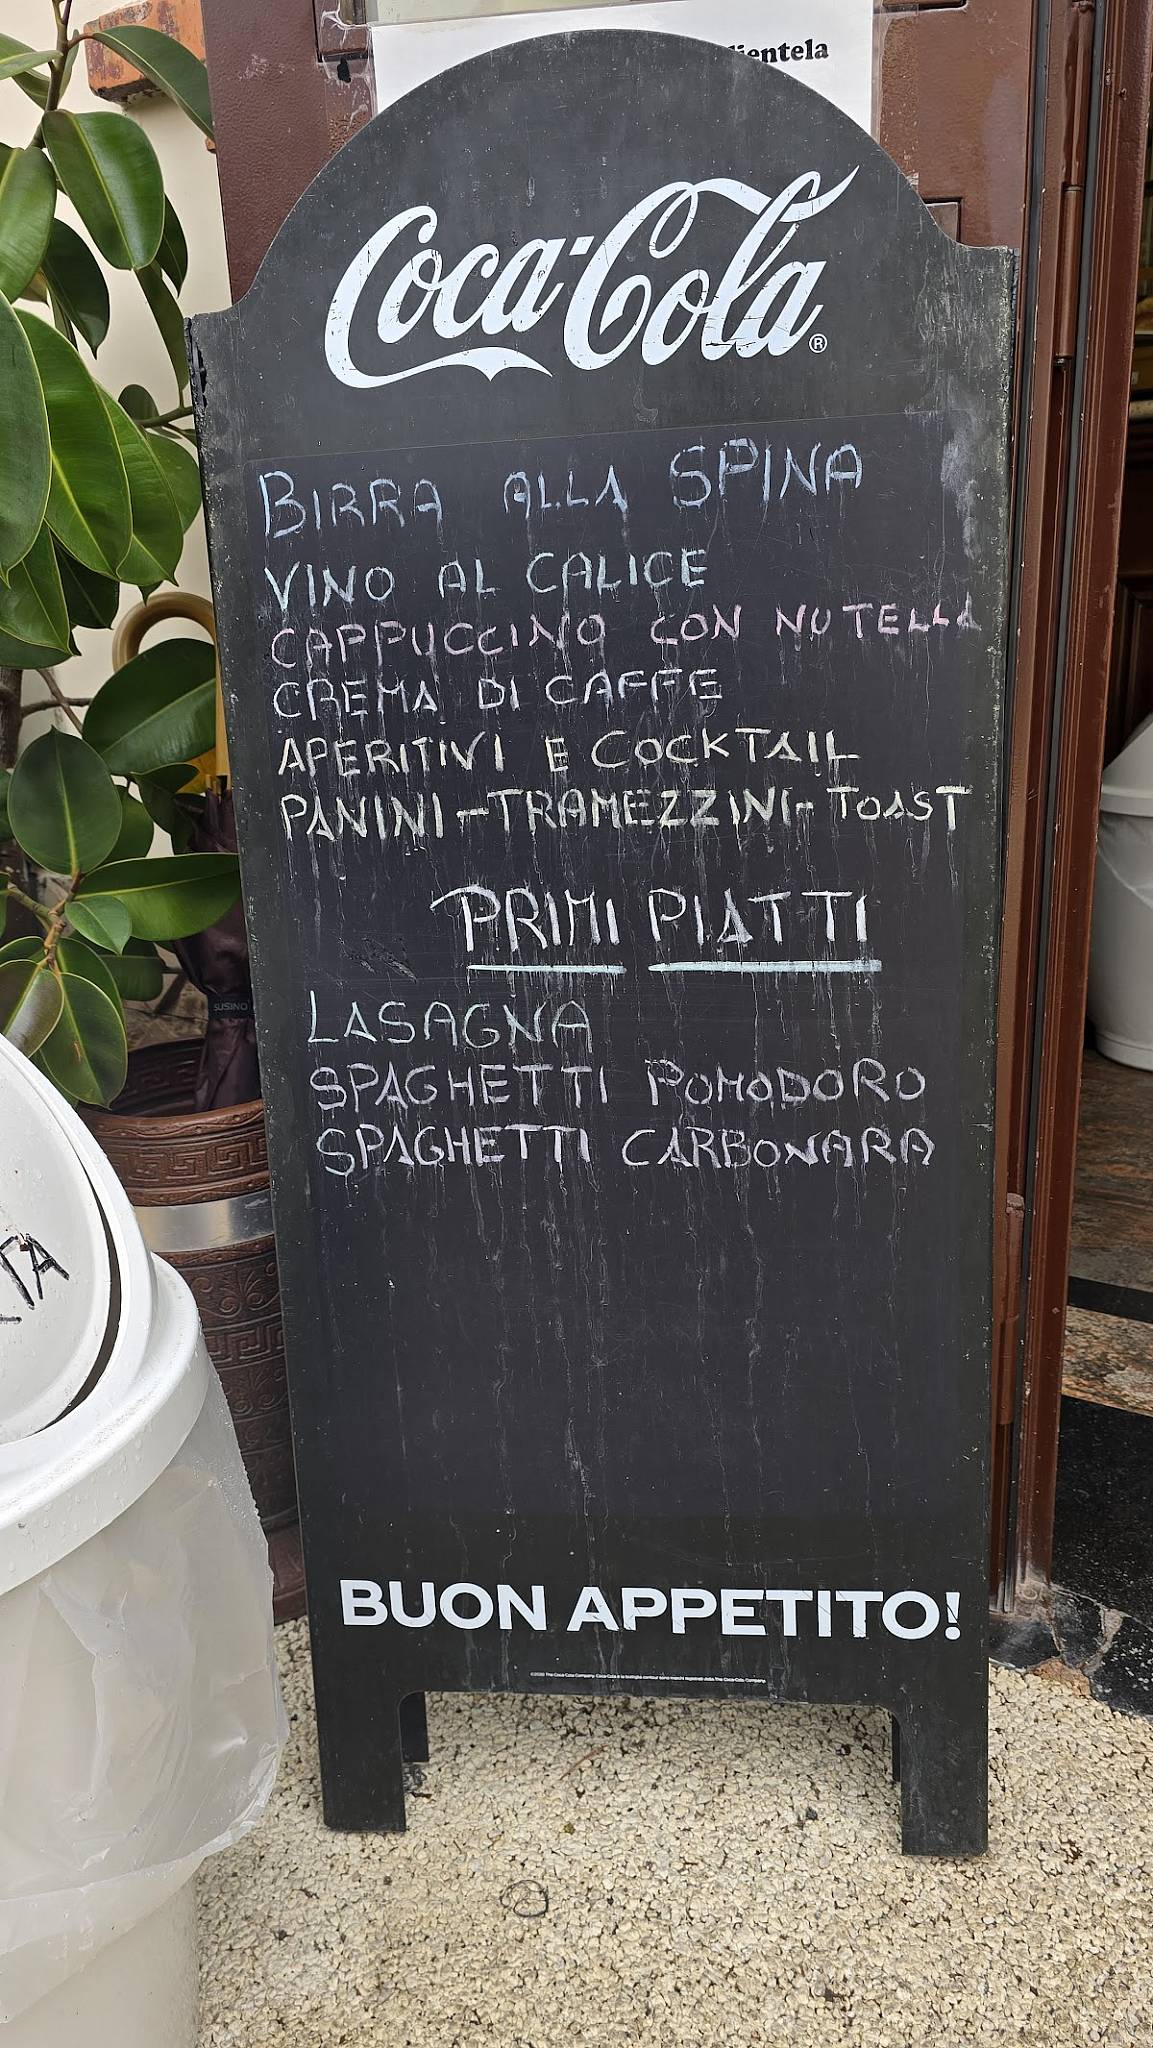 clientela
Coca-Cola®
BIRRA ALLA SPINA
VINO AL CALICE
CAPPUCCINO CON NUTELLA
CREMA DI CAFFE
APERITIVI E COCKTAIL
PANINI-TRAMEZZINI-TOAST
PRIMI PIATTI
LASAGNA
SPAGHETTI POMODORO
SPAGHETTI CARBONARA
SUSINO
BUON APPETITO!